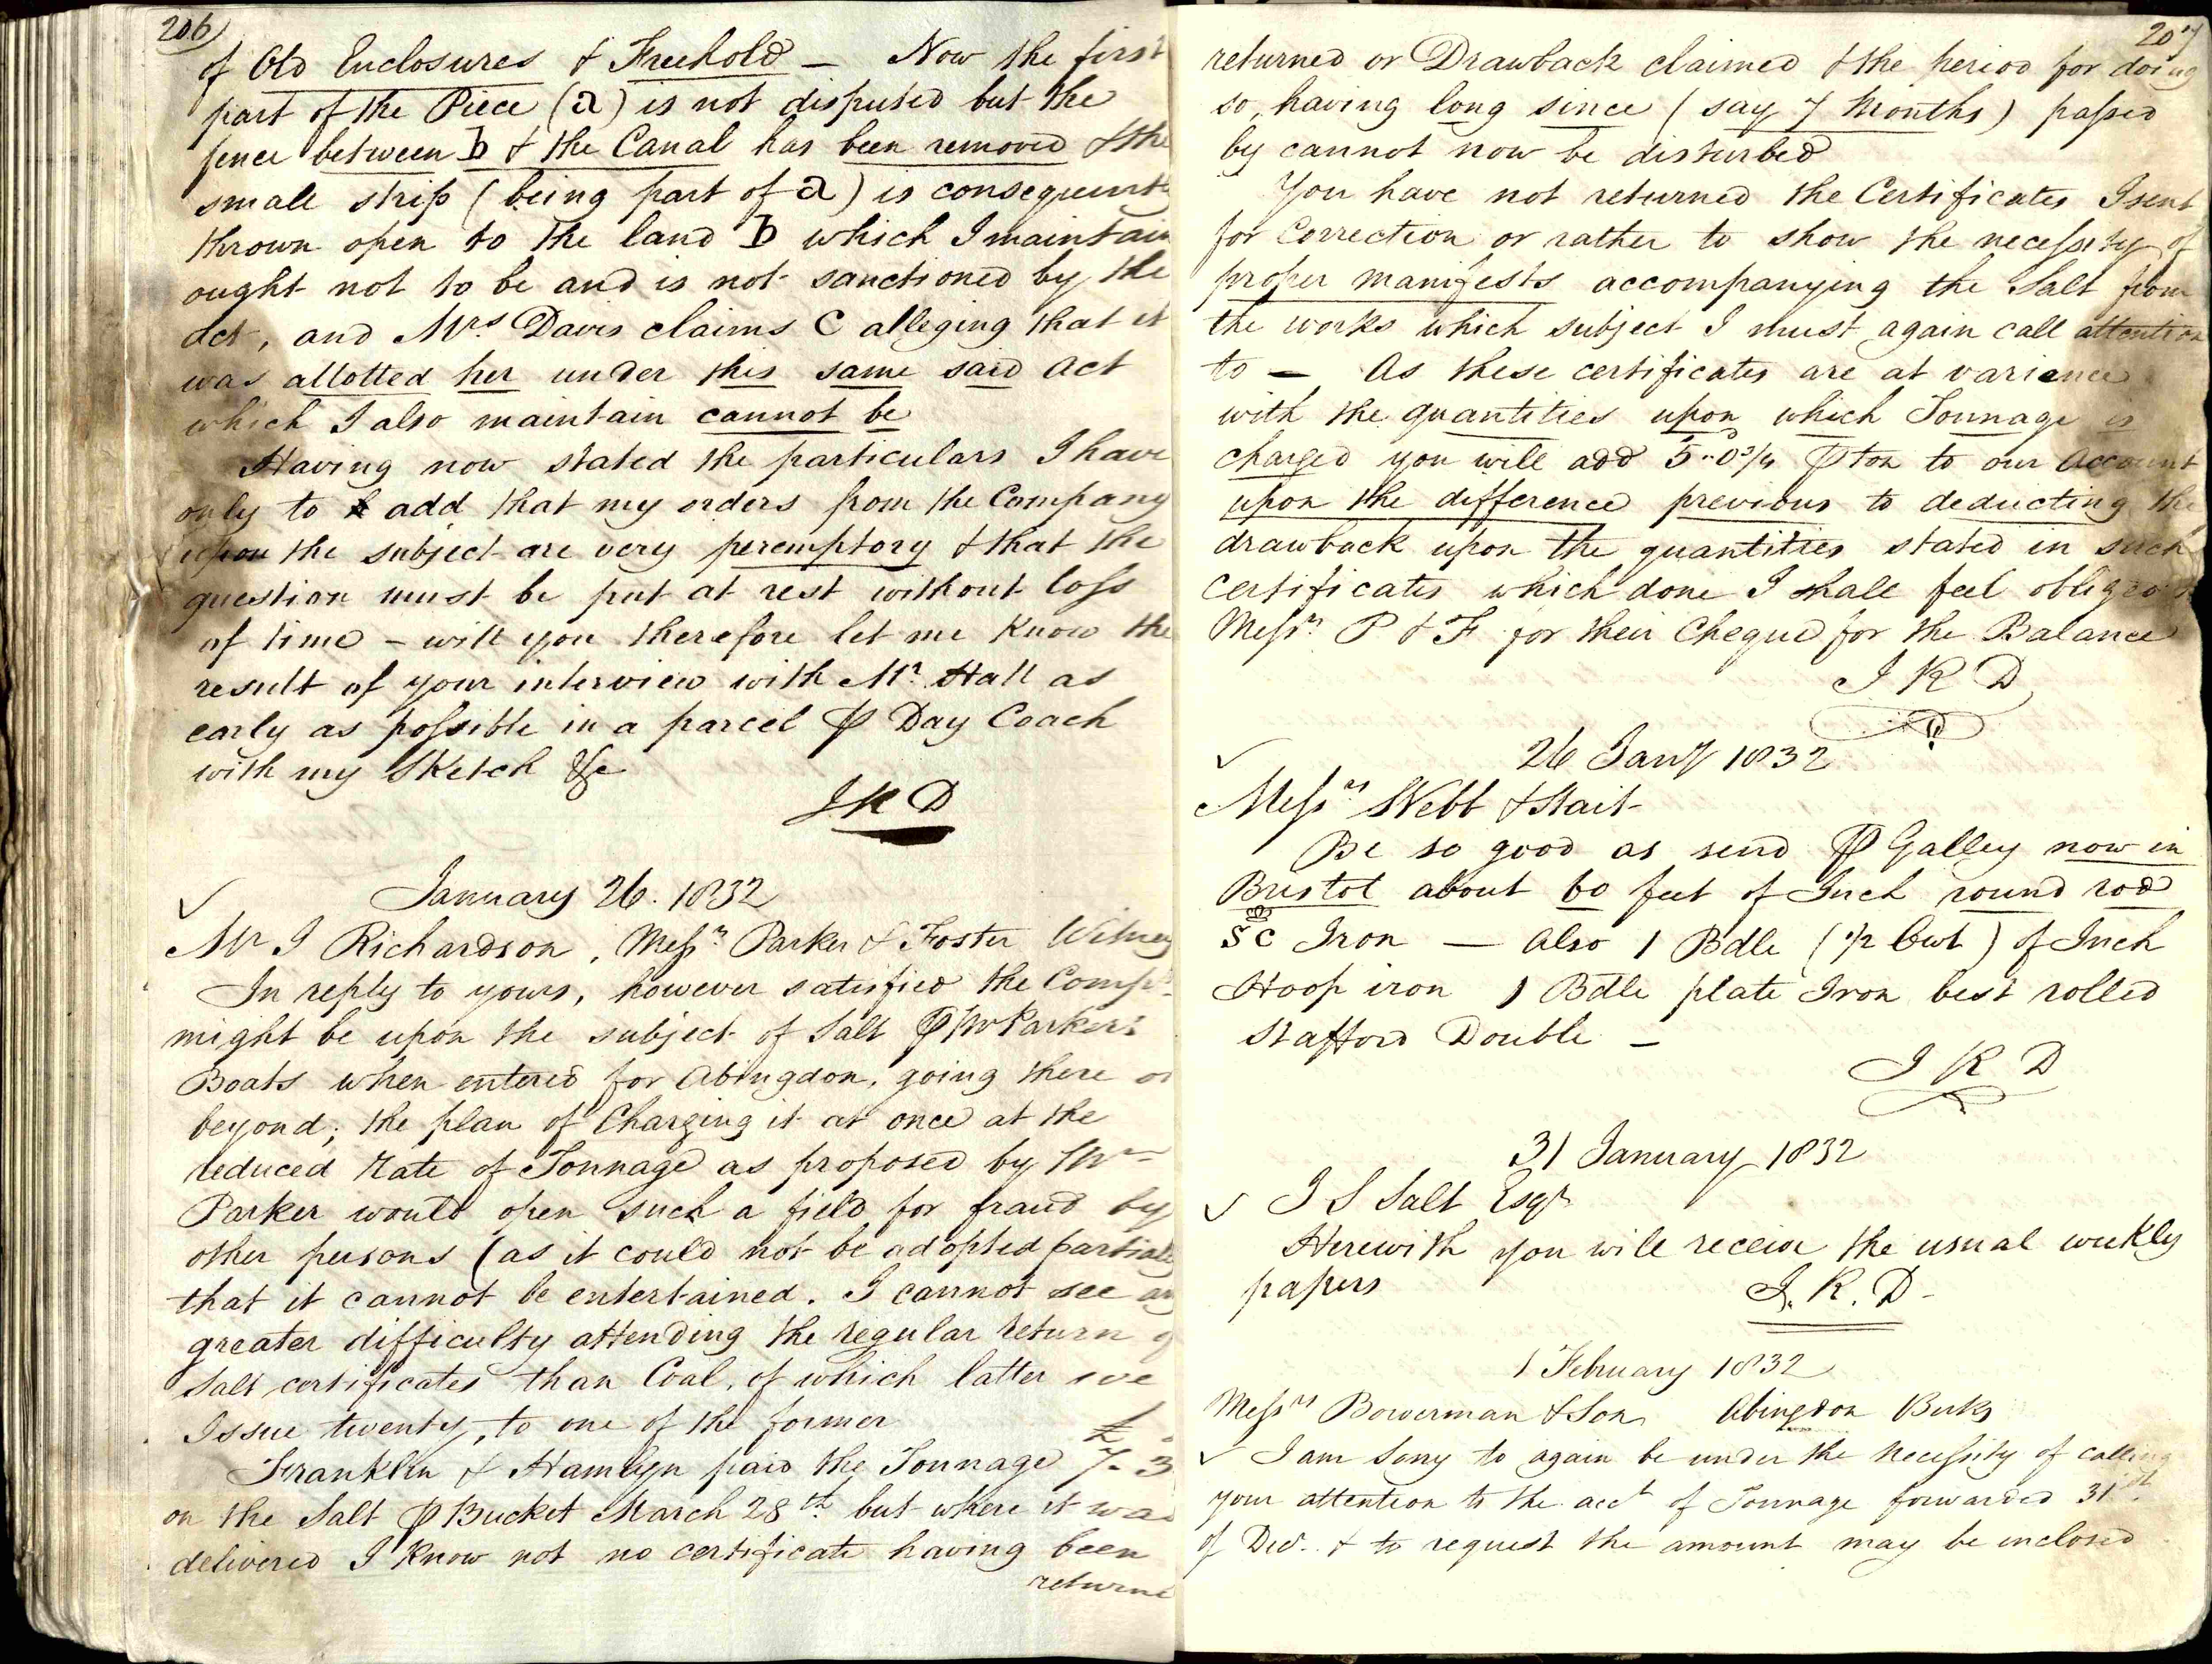 206
of Old Enclosures & Freehold — Now the first
part of the Piece (a) is not disputed but the
fence between b & the Canal has been removed & the
small strip (being part of a) is consequently
thrown open to the land b which I maintain
ought not to be and is not sanctioned by the
act, and Mrs Davis claims C alleging that it
was allotted her under this same said act
which I also maintain cannot be
Having now stated the particulars I have
only to add that my orders from the Company
upon the subject are very peremptory & that the
question must be put at rest without loss
of time – will you therefore let me know the
result of your interview with Mr. Hall as
early as possible in a parcel ⅌ Day Coach
with my Sketch &c
J K D
January 26. 1832
Mr J Richardson, Messrs Parker & Foster Witney
In reply to yours, however satisfied the Compy
might be upon the subject of Salt ⅌ Mr Parkers
Boats when entered for Abingdon, going there or
beyond; the plan of Charging it at once at the
reduced Rate of Tonnage as proposed by Mr
Parker would open such a field for fraud by
other persons (as it could not be adopted partially
that it cannot be entertained. I cannot see any
greater difficulty attending the regular return of
Salt certificates than Coal, of which latter we
Issue twenty, to one of the former
Franklin & Hamlyn paid the Tonnage £7-3
on the Salt ⅌ Bucket March 28th but where it was
delivered I know not no certificate having been
returne
207
returned or Drawback claimed & the period for doing
so, having long since (say 7 Months) passed
by cannot now be disturbed
You have not returned the Certificates I sent
for Correction or rather to show the necessity of
proper manifests accompanying the Salt from
the works which subject I must again call attention
to — As these certificates are at variance
with the quantities upon which Tonnage is
charged you will add 5"0¾ ⅌ ton to our Account
upon the difference previous to deducting the
drawback upon the quantities stated in such
certificates which done I shall feel obliged to
Messrs P & F for their Cheque for the Balance
J K D
26 Jany 1832
Messrs Webb & Stait
Be so good as send ⅌ Galley now in
Bristol about 60 feet of Inch round rod
S C Iron — Also 1 Bdle (½ Cwt) of Inch
Hoop iron 1 Bdle plate Iron best rolled
Stafford Double —
J K D
31 January 1832
J S Salt Esqr
Herewith you will receive the usual weekly
papers
J. K. D -
1 February 1832
Messrs Bowerman & Son Abingdon Berks
I am sorry to again be under the necessity of calling
your attention to the acct of Tonnage forwarded 31st
of Decr. & to request the amount may be inclosed